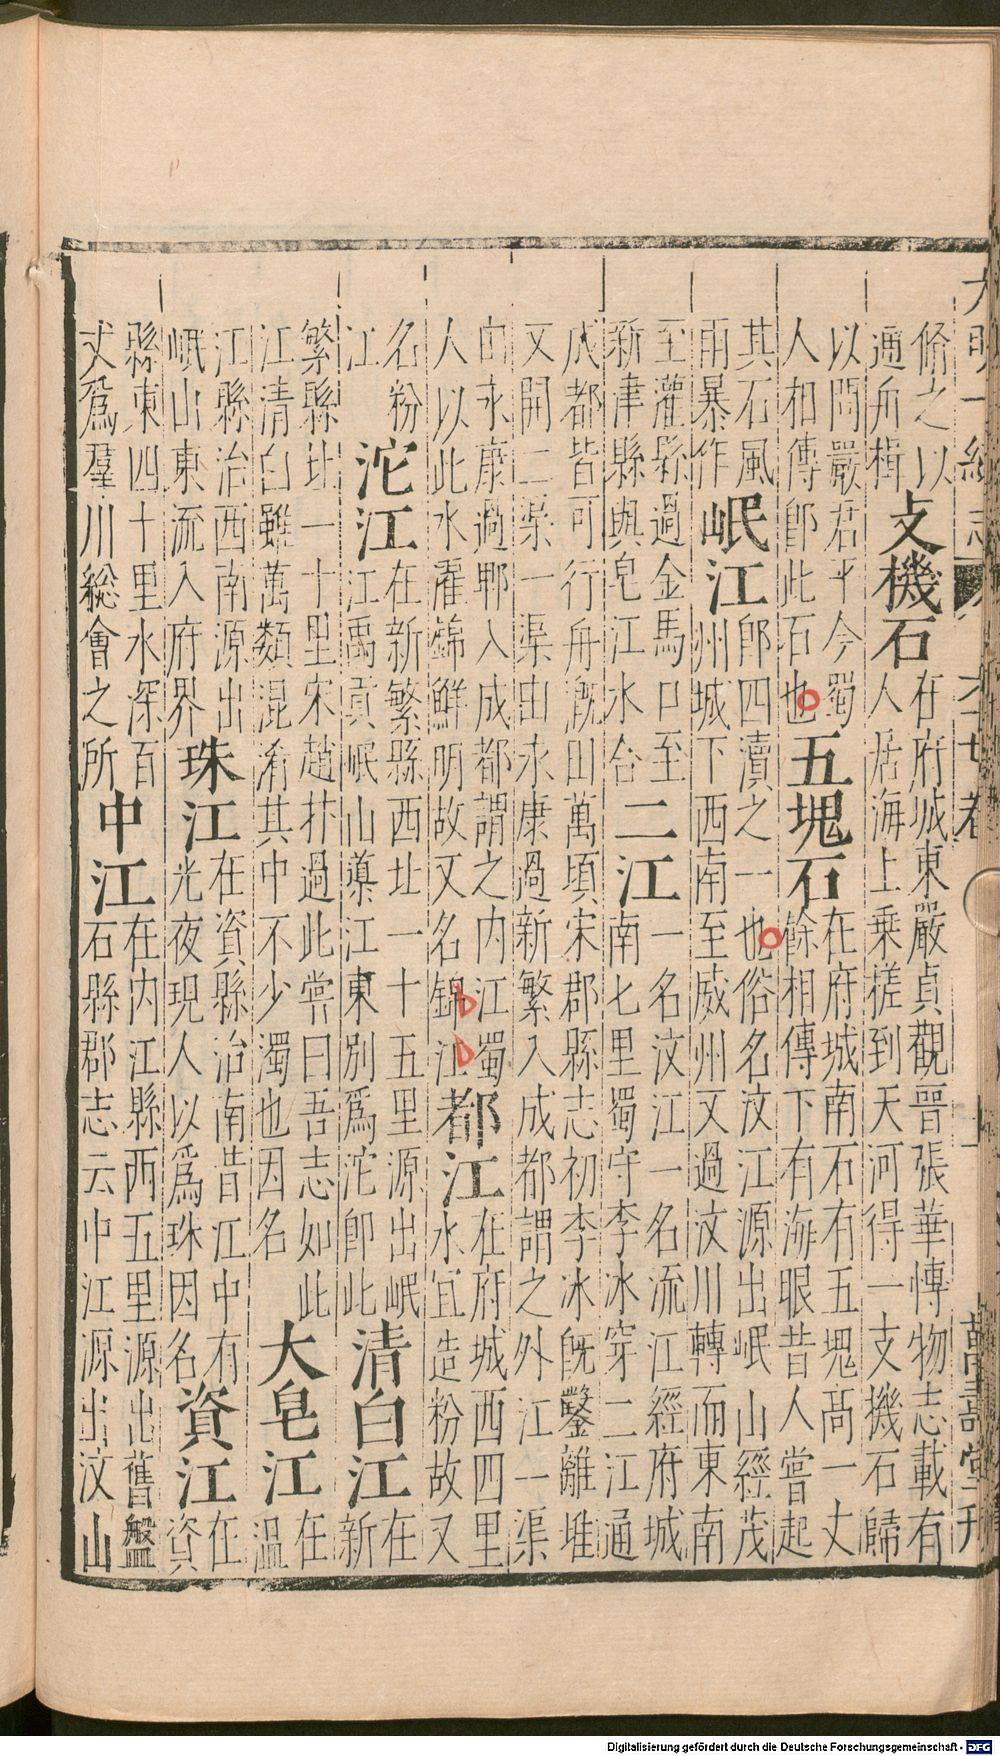 大明一統志 卷六十七 萬壽堂刊
脩之以通舟楫 支機石 在府城東嚴貞觀晉張華博物志載有人居海上乘槎到天河得一支機石歸
以問嚴君平今蜀人相傳卽此石也 五塊石 在府城南石有五塊高一丈餘相傳下有海眼昔人嘗起
其石風雨暴作 岷江 卽四瀆之一也俗名汶江源出岷山經茂州城下西南至威州又過汶川轉而東南
至灌縣過金馬口至新津縣與皂江水合 二江 一名汶江一名流江經府城南七里蜀守李冰穿二江通
成都皆可行舟溉田萬頃宋郡縣志初李冰旣鑿離堆又開二渠一渠由永康過新繁入成都謂之外江一渠
由永康過郫入成都謂之内江蜀人以此水濯錦鮮明故又名錦江 都江 在府城西四里水宜造粉故又
名粉江 沱江 在新繁縣西北一十五里源出岷江禹貢岷山導江東別爲沱卽此 清白江 在新
繁縣北一十里宋趙抃過此嘗曰吾志如此江清白雖萬類混淆其中不少濁也因名 大皂江 在溫
江縣治西南源出岷山東流入府界 珠江 在資縣治南昔江中有光夜現人以爲珠因名 資江 在資
縣東四十里水深百丈爲羣川總會之所 中江 在内江縣西五里源出舊盤石縣郡志云中江源出汶山
Digitalisierung gefördert durch die Deutsche Forschungsgemeinschaft - DFG